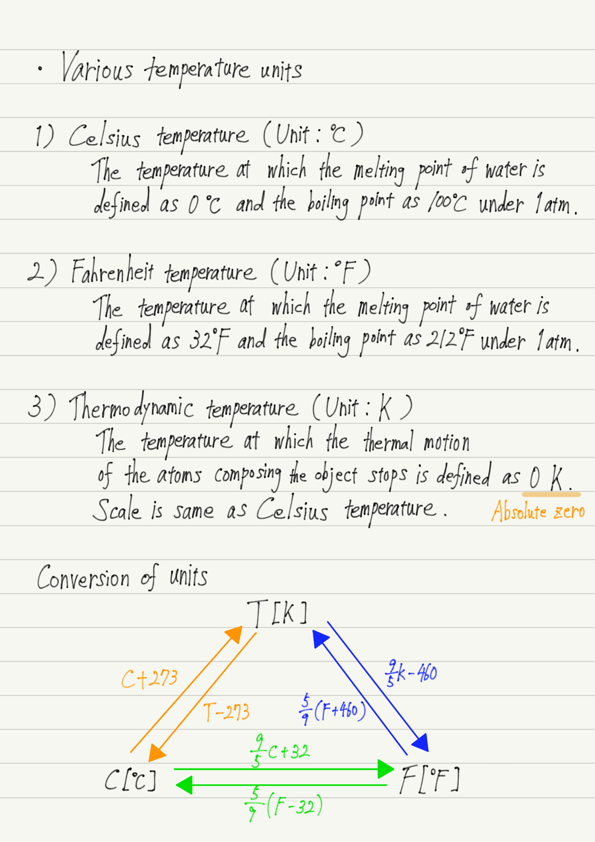 ・Various temperature units
1) Celsius temperature (Unit : ℃)
The temperature at which the melting point of water is
defined as 0℃ and the boiling point as 100℃ under 1atm.
2) Fahrenheit temperature (Unit : °F)
The temperature at which the melting point of water is
defined as 32°F and the boiling point as 212°F under 1atm.
3) Thermodynamic temperature (Unit : K)
The temperature at which the thermal motion
of the atoms composing the object stops is defined as 0 K.
Scale is same as Celsius temperature.
Absolute zero
Conversion of units
T[K]
C+273
T-273
9/5 k-460
5/9 (F+460)
9/5 C+32
C[℃]
F[°F]
5/9 (F-32)